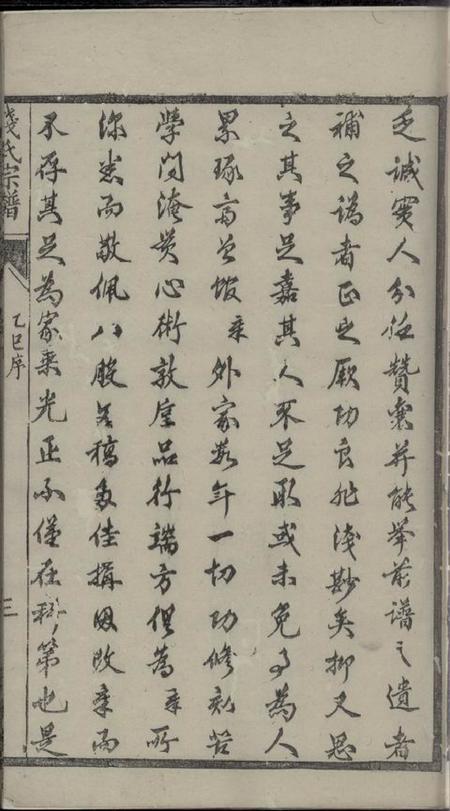 乏誠實人分任贊襄并能舉前譜之遺者
補之譌者正之厥功良非淺尠矣抑又思
之其事足嘉其人不足取或未免為人
累琢齋曾館外家數年一切功修刻苦
學問淹貫心術敦厚品行端方俱為所
深悉而敬佩八股草稿多佳搆因改章而
不存其足為家乘光正不僅在科第也是
錢氏宗譜
乙巳序
三